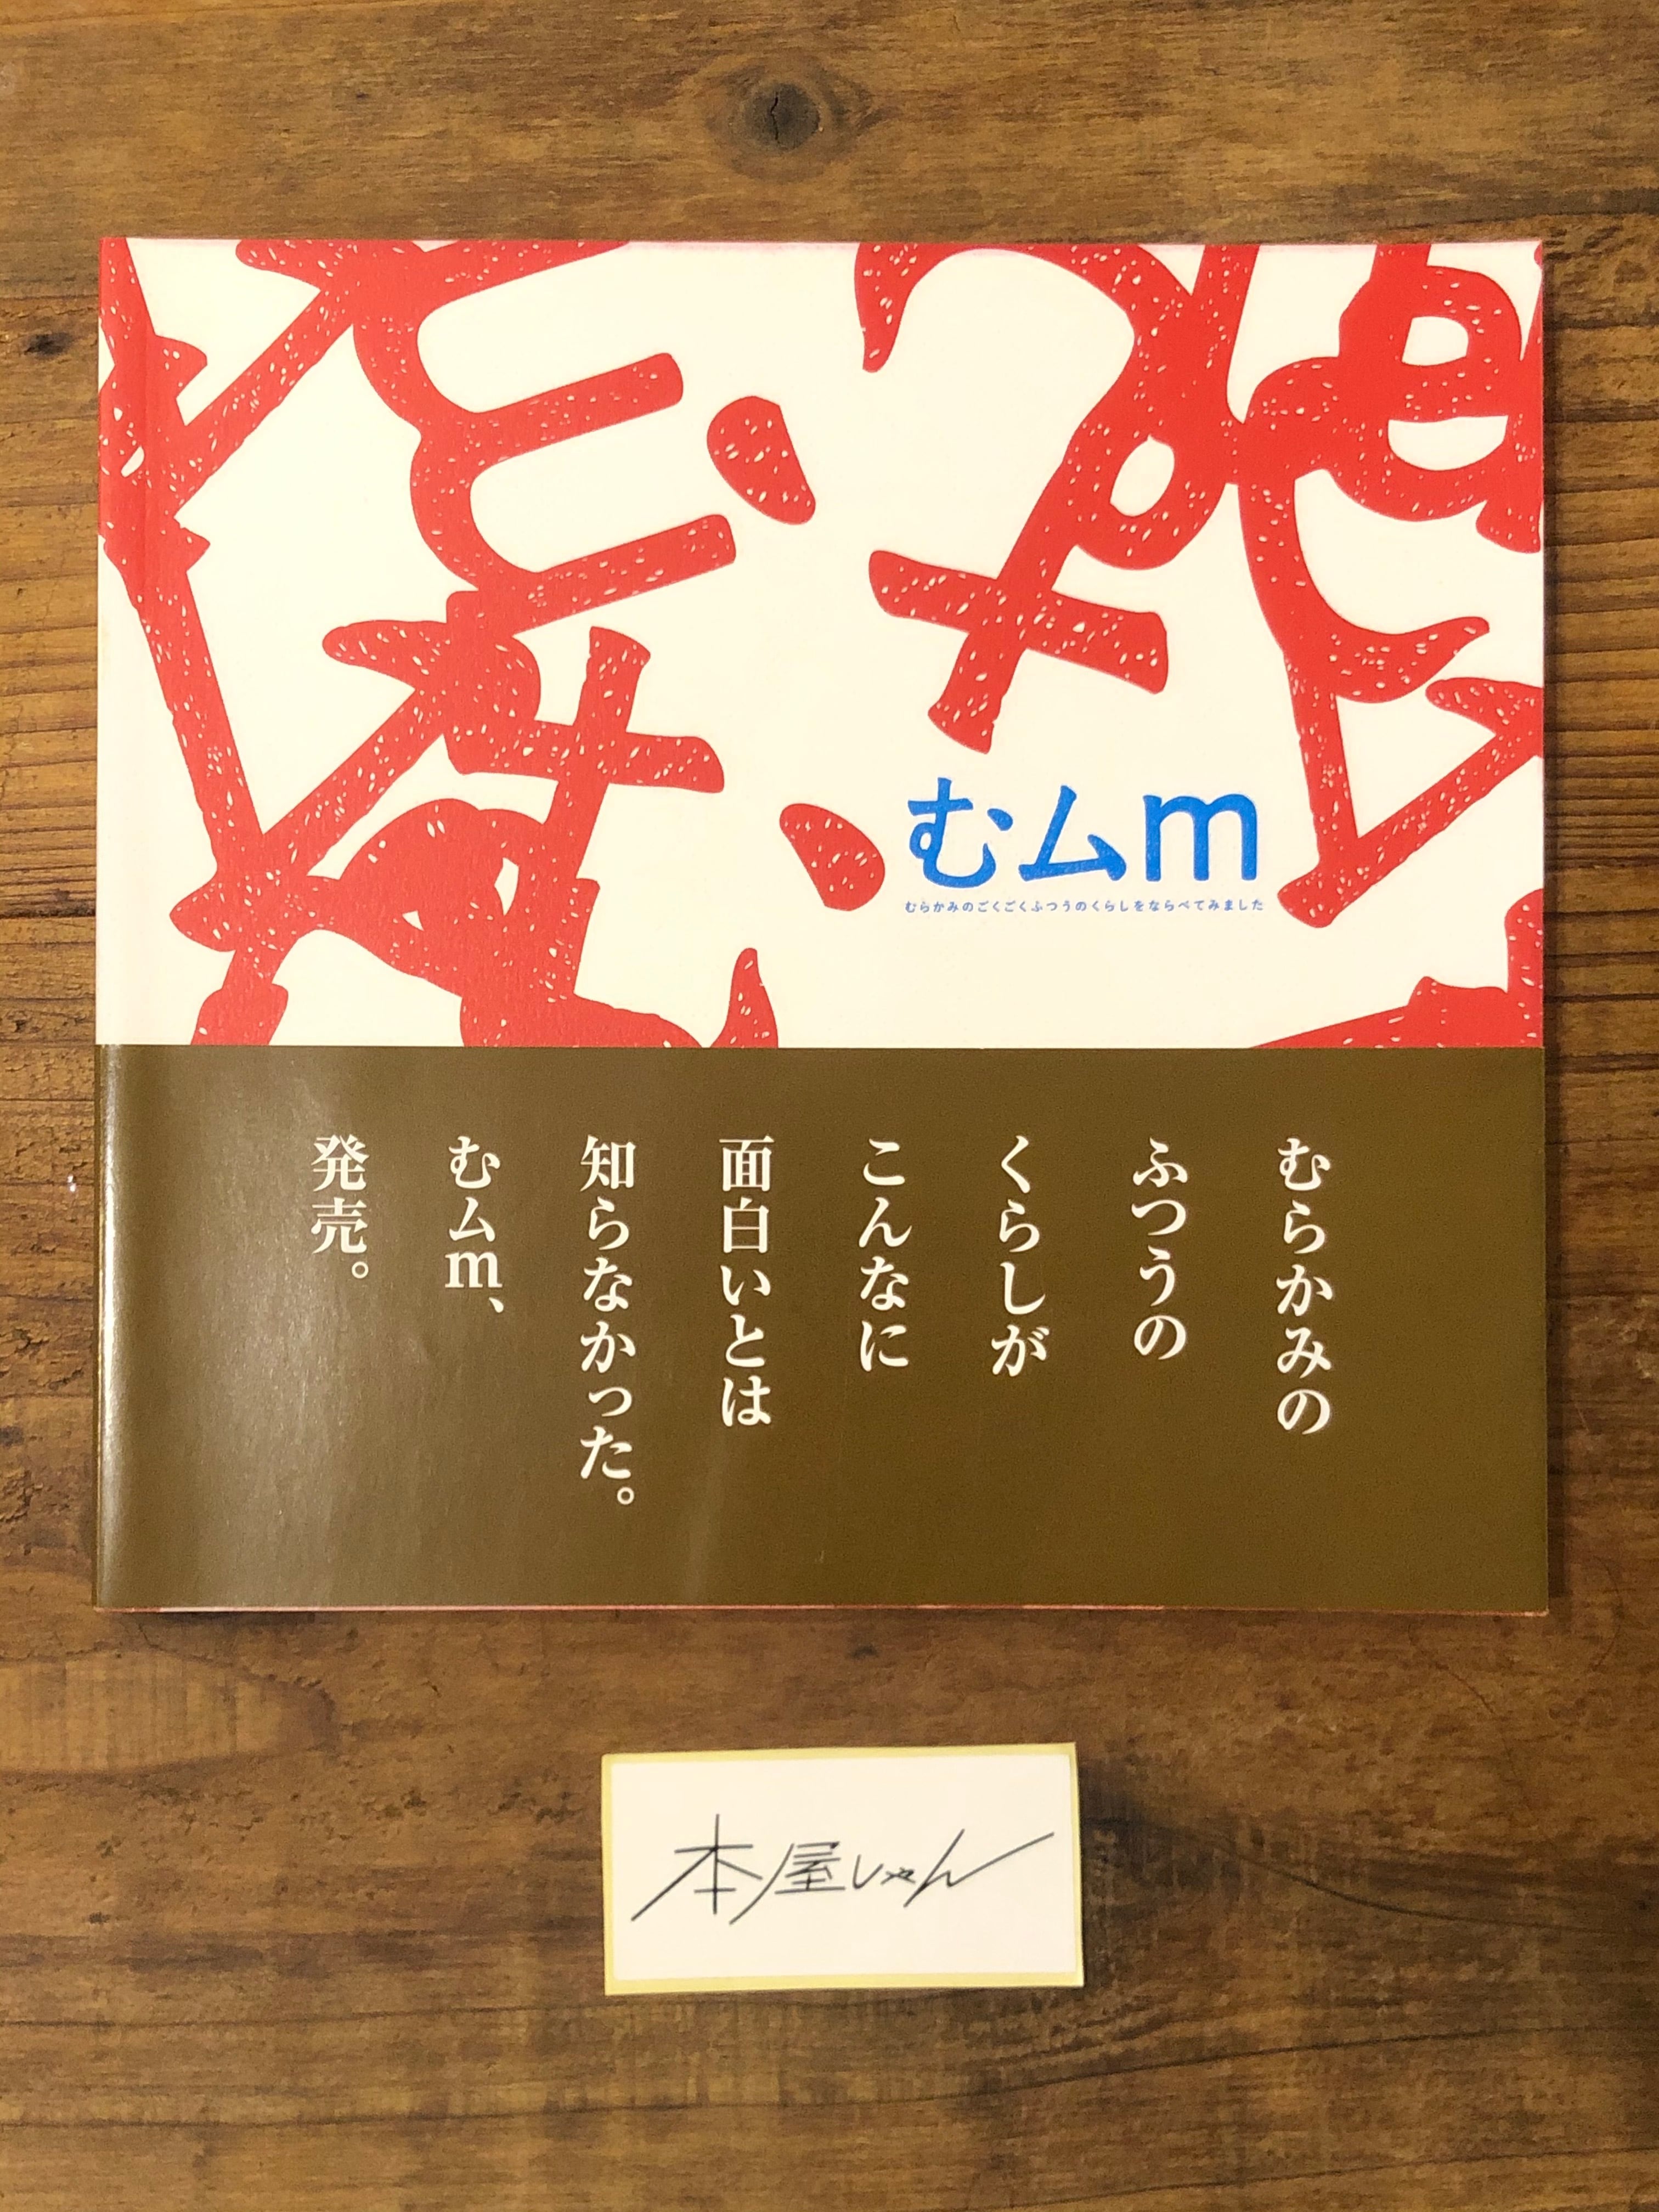 むムm
むらかみのごくごくふつうのくらしをならべてみました
むらかみの
ふつうの
くらしが
こんなに
面白いとは
知らなかった。
むムm、
発売。
本屋しゃん